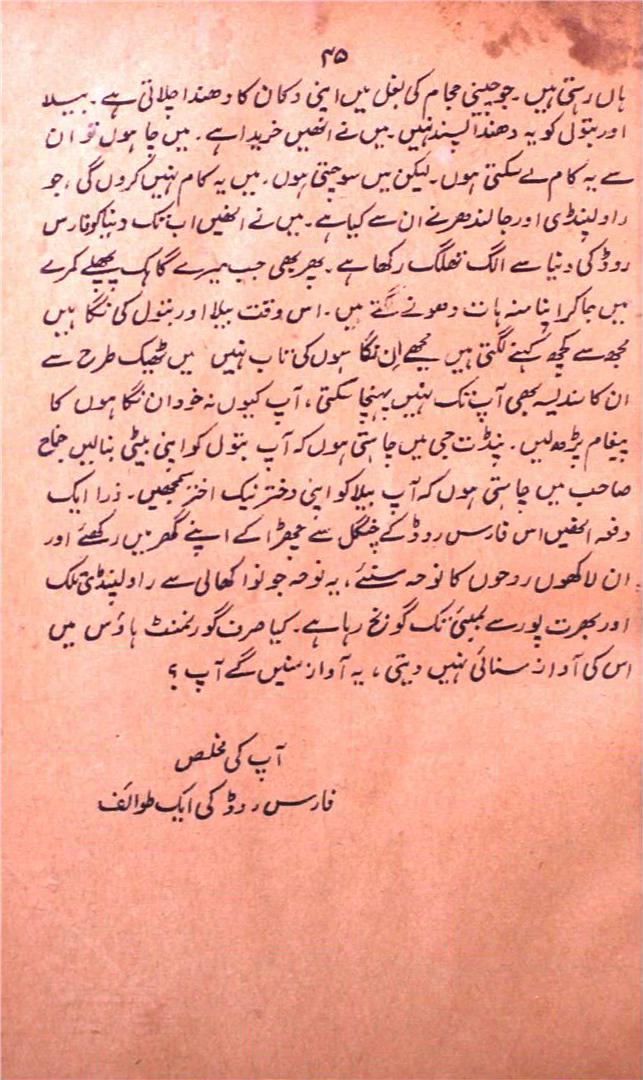 ۴۵
ہاں رہتی ہیں۔ جو چینی حجام کی بغل میں اپنی دکان کا دھندا چلاتی ہے۔ بیلا
اور بتول کو یہ دھندا پسند نہیں۔ میں نے انھیں خریدا ہے۔ میں چاہوں تو ان
سے یہ کام لے سکتی ہوں۔ لیکن میں سوچتی ہوں، میں یہ کام نہیں کروں گی، جو
راولپنڈی اور جالندھر نے ان سے کیا ہے۔ میں نے انھیں اب تک دنیا کو فارس
روڈ کی دنیا سے الگ تھلگ رکھا ہے۔ پھر بھی جب میرے گاہک پچھلے کمرے
میں جا کر اپنا منہ ہات دھونے لگتے ہیں۔ اس وقت بیلا اور بتول کی نگاہیں
مجھ سے کچھ کہنے لگتی ہیں مجھے ان نگاہوں کی تاب نہیں میں ٹھیک طرح سے
ان کا سندیسہ بھی آپ تک نہیں پہنچا سکتی، آپ کیوں نہ خود ان نگاہوں کا
پیغام پڑھ لیں۔ پنڈت جی میں چاہتی ہوں کہ آپ بتول کو اپنی بیٹی بنالیں جناح
صاحب میں چاہتی ہوں کہ آپ بیلا کو اپنی دختر نیک اختر سمجھیں۔ ذرا ایک
دفعہ انھیں اس فارس روڈ کے چنگل سے چھڑا کے اپنے گھر میں رکھئے اور
ان لاکھوں روحوں کا نوحہ سنئے، یہ نوحہ جو نواکھالی سے راولپنڈی تک
اور بھرت پور سے بمبئی تک گونج رہا ہے۔ کیا صرف گورنمنٹ ہاؤس میں
اس کی آواز سنائی نہیں دیتی، یہ آواز سنیں گے آپ؟
آپ کی مخلص
فارس روڈ کی ایک طوائف